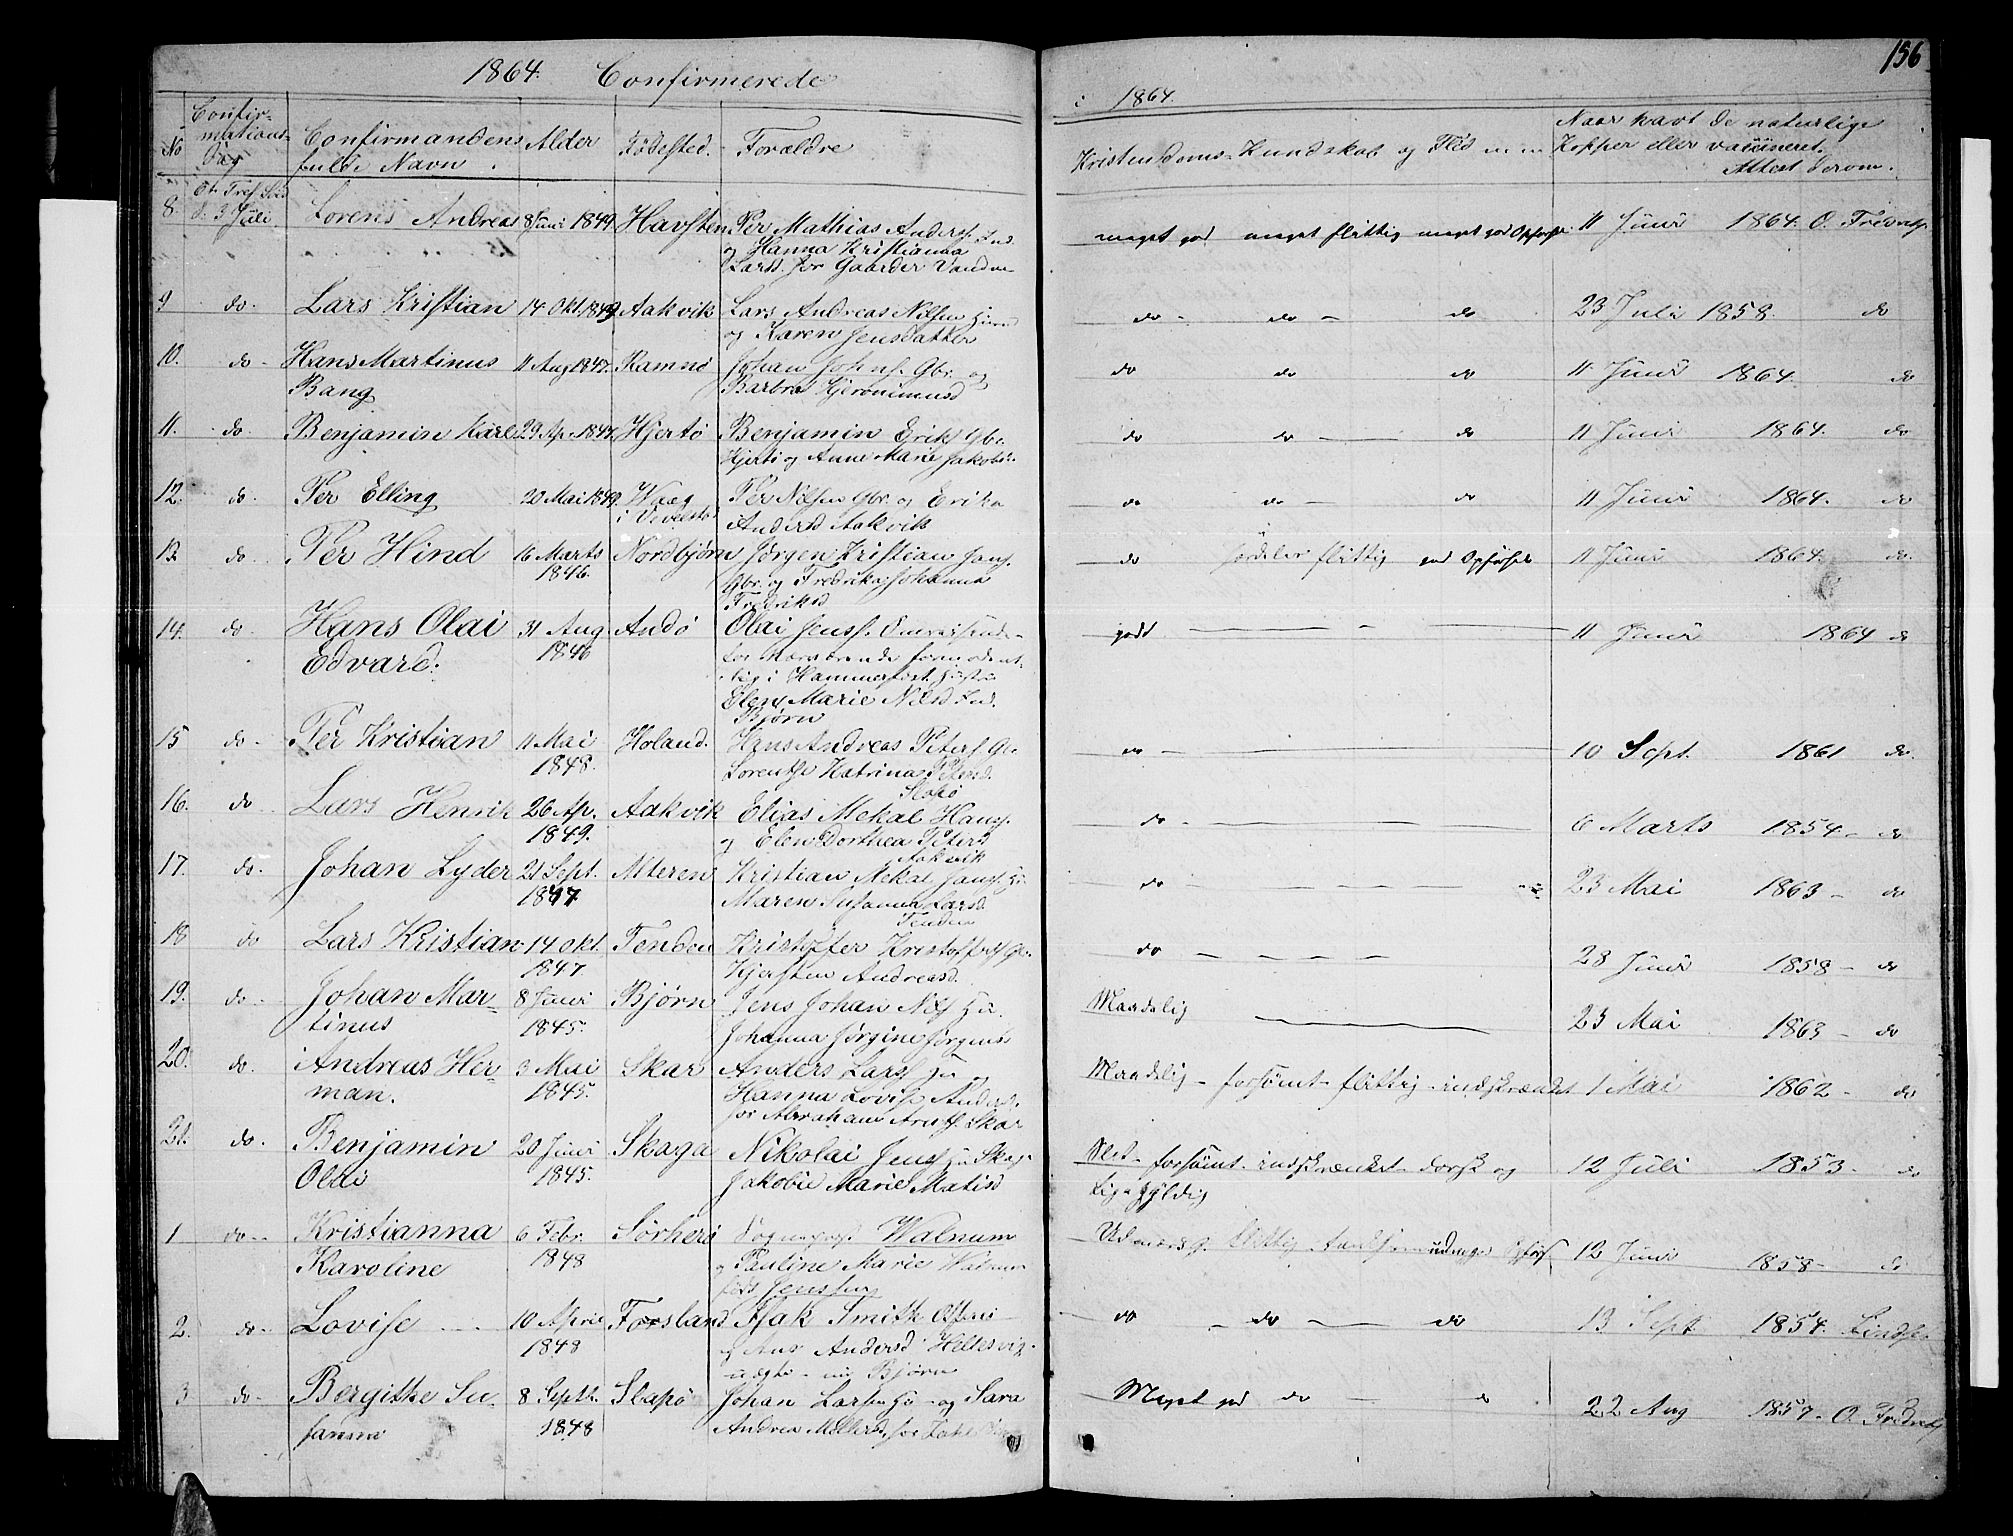 1864. Confirmerede
i 1864.
156
No
Confir-
mations-
Dag
Confirmandens
fulde Navn.
Alder
Födested.
Forældre
Kristendoms-Kundskab og Flid
Naar havt de naturlige
Kopper eller vaccineret.
Attest derom.
8. 3 Juli Lorens Andreas 8 Juni 1849 Havsten Per Mathias Anders. Ind.
og Hanna Kristianna
Larsd. for Gaarder Vandve
meget god meget flittig meget god Opførsel 11 Juni 1864. O. Fredriks.
9 do. Lars Kristian 14 Okt. 1849 Aakvik Lars Andreas Nilsen
og Karen Jensdatter
do - do - do 23 Juli 1858. do
10. do - Hans Martinus 11 Aug 1847. Ramnö Johan Johns. Gbr. og
Bang Barbra Hjeronimusd
do do do 11 Juni 1864. do
11. do. Benjamin Karl 29 Ap. 1847. Hjertö Benjamin Erik Gbr.
Hjertö og Anne Marie Jakobs.
do do - do 11 Juni 1864. do
12. do. Per Elling 20 Mai 1849. Waag Per Nilsen Gbr. og Erika
i Vevelstad Andersd Aakvik
do do - do 11 Juni 1864. do
13. do Per Hind 16 Marts Nordbjørn Jørgen Kristian Jans.
1846. Gbr. og Fredrika Johanna
Fredriksd
do flittig god Opførsel 11 Juni 1864. do.
14. do. Hans Olai 31 Aug Andö Olai Jenss.
Edvard. 1846
i Hammerfest
Elen Marie Nilsd. Ind.
Bjørn
godt 11 Juni 1864 do
15 do - Per Kristian 11 Mai Holand. Hans Andreas Peters. Gbr.
1848. Lorentse Katrina Petersd.
Slapø
do - 10 Sept. 1861 do.
16. do Lars Henrik 26 Ap. Aakvik Elias Mekal Hans.
1849. og Elen Dorthea Petersd
Aakvik
do - 6 Marts 1854 - do
17. do. Johan Lyder 21 Sept. Alteren Kristian Mekal Jans.
1847 Maren Susanna Larsd.
Tenden
do - 23 Mai 1863 - do
18 do Lars Kristian 14 Okt. Tenden Kristoffer Kristoffers. Gbr.
1847 Kjersten Andreasd.
do 28 Juni 1858 - do
19. do - Johan Mar- 8 Juni Bjørn Jens Johan Nils.
tinus 1845. Johanna Jørgine Jørgensd
Maadelig 23 Mai 1863 - do
20. do. Andreas Her- 3 Mai Skar Anders Larss og
man. 1845. Hanna Lovise Andersd.
for Abraham Skar
Maadelig - forsömt - flittig - indskrænket 1 Mai 1862 - do
21. do. Benjamin 20 Juni Skaga Nikolai Jenss Skag
Olai 1845. Jakobie Marie Matisd
Slet - forsömt - indskrænket - dorsk og 12 Juli 1853 - do
Ligegyldig
1 do - Kristianna 6 Febr. Sörherö Sogneprest Walnum
Karoline 1848 og Pauline Marie Walnum
föds Jenssen
Udmærket flittig 12 Juni 1858 - do
2. do - Lovise 10 April Forsland Isak Smith
1848 og Ane Andersd Hellesvig
Bjørn
do - do - do 13 Sept. 1854.
3 do - Bergitte Su- 8 Septb. Slapö Johan Larsen og Sara
sanna 1848 Andrea
Meget god do - do 22 Aug 1857 - O. Fredriks